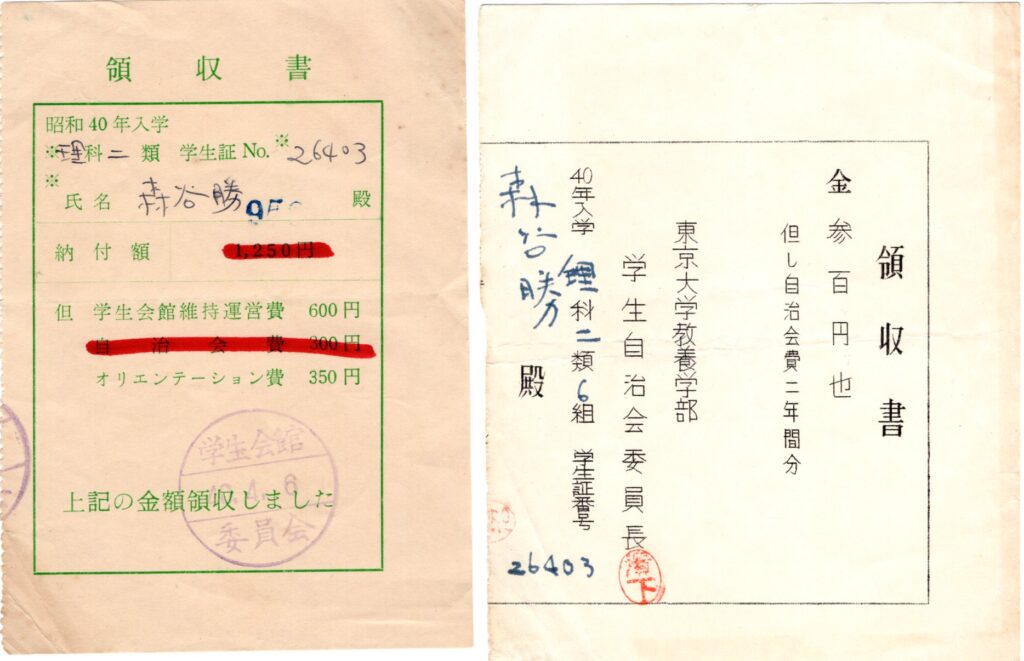 領収書
昭和40年入学
※理科二類 学生証No.※26403
※氏名 森谷勝 殿
950
納付額 1,250円
但 学生会館維持運営費 600円
自治会費 300円
オリエンテーション費 350円
上記の金額領収しました
学生会館
40.4.6
委員会
領収書
金参百円也
但し自治会費二年間分
東京大学教養学部
学生自治会委員長
40年入学 理科二類6組 学生証番号 26403
森谷勝 殿